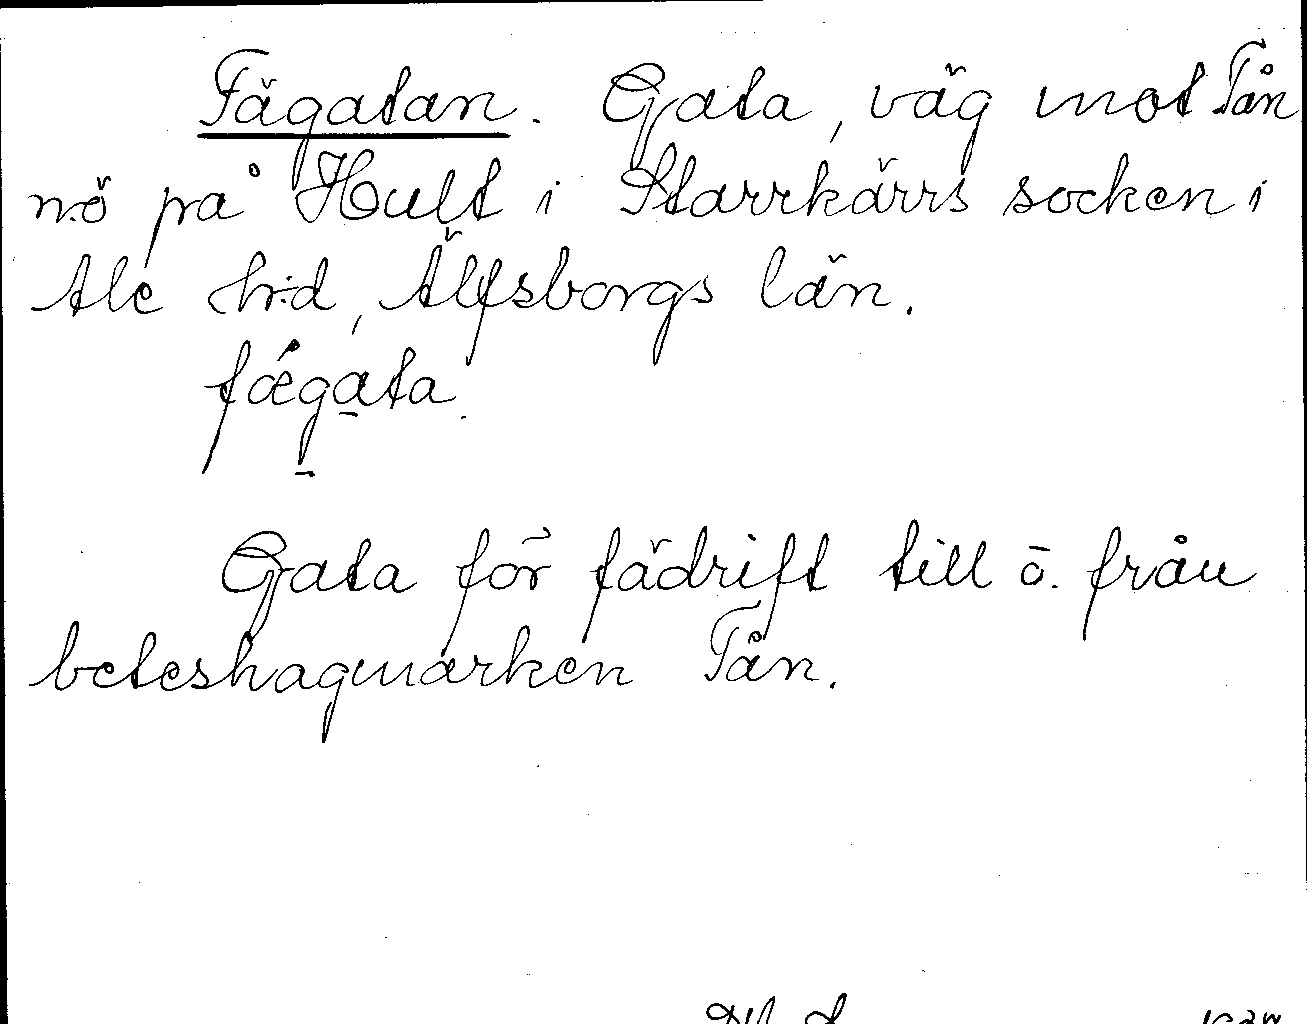 Fägatan. Gata, väg mot Tån
nö på Hult i Starrkärrs socken i
Ale h:d, Älfsborgs län.
fǽgata.
Gata för fädrift till o. från
beteshagmarken Tån.